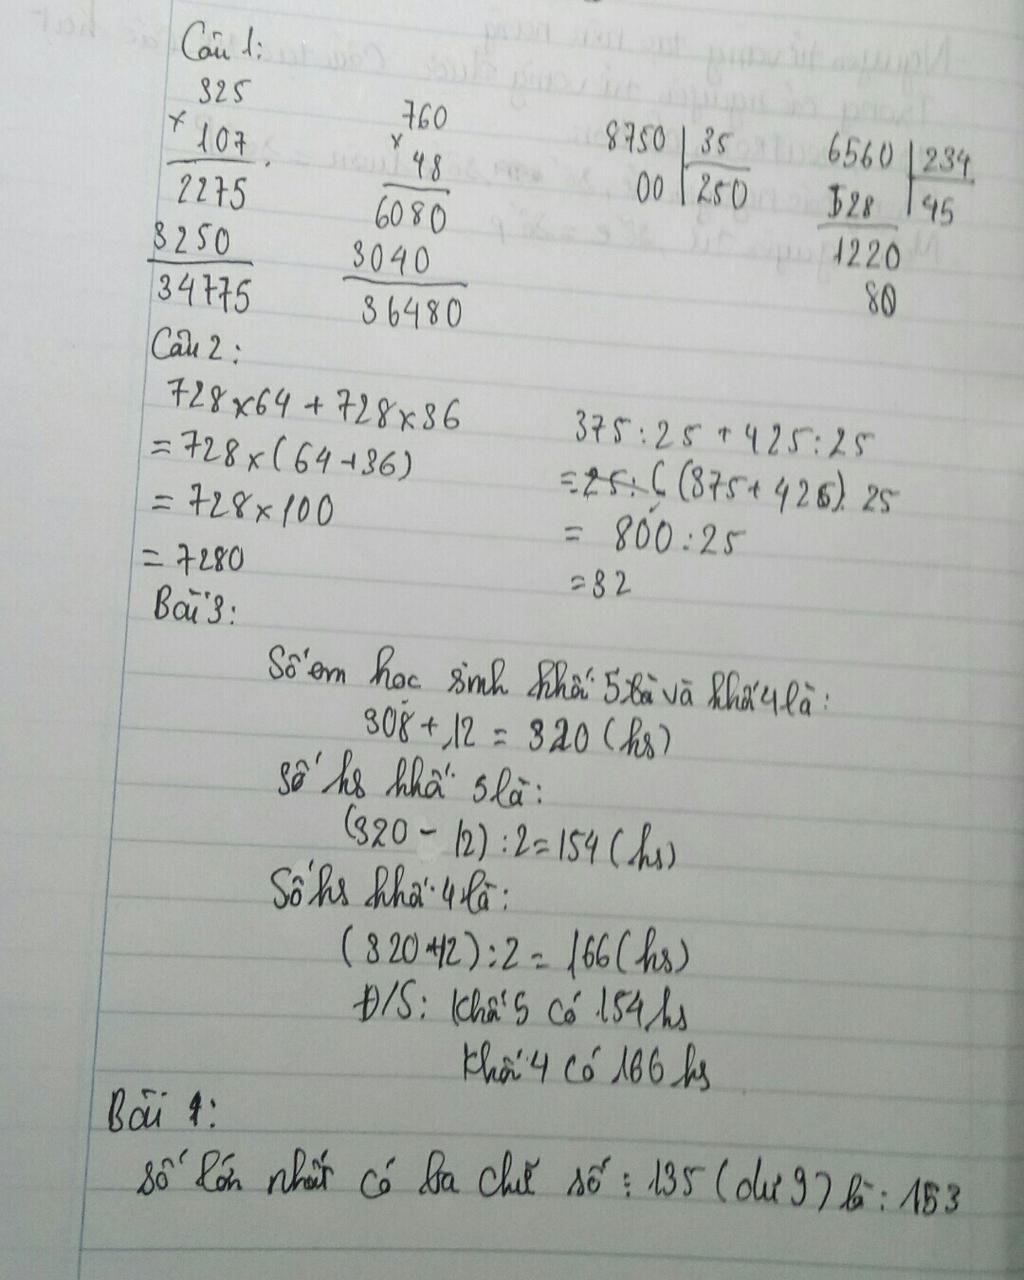 Câu 1:
325
x 107
2275
3250
34775
760
x 48
6080
3040
36480
8750 | 35
00 | 250
6560 | 234
528 | 45
1220
80
Câu 2:
728 x 64 + 728 x 36
= 728 x (64 + 36)
= 728 x 100
= 7280
375 : 25 + 425 : 25
= (375 + 425) : 25
= 800 : 25
= 32
Bài 3:
Số em học sinh khối 5 và khối 4 là:
308 + 12 = 320 (hs)
Số hs khối 5 là:
(320 - 12) : 2 = 154 (hs)
Số hs khối 4 là:
(320 + 12) : 2 = 166 (hs)
Đ/S: khối 5 có 154 hs
khối 4 có 166 hs
Bài 4:
Số lớn nhất có ba chữ số : 135 (dư 9) là: 153